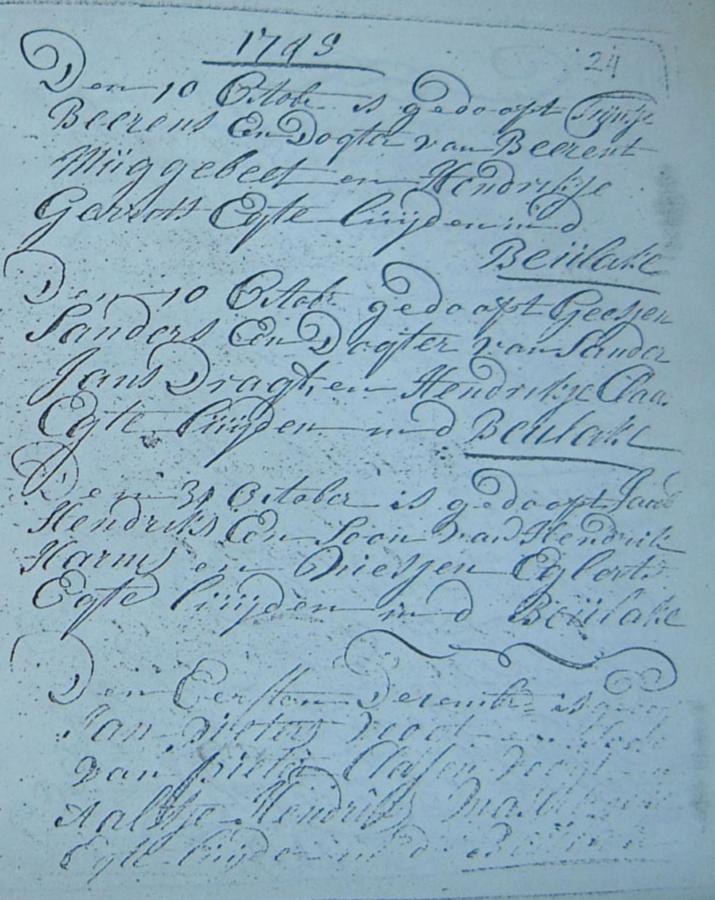 1749
24
Den 10 Octobr is gedoopt Trijntje
Beerens Een Dogter van Beerent
Müggebeet en Hendrikje
Gerrots Egte luijden in d
Beülake
Den 10 Octobr gedoopt Geesjen
Sanders Een Dogter van Sander
Jans Dragt en Hendrikje Claa
Egte luijden in d Beulake
Den 31 October is gedoopt
Hendriks Een Soon van Hendrik
Harms en Driesjen Egberts
Egte luijden in d Beülake
Den Eersten Decembr is
Jan
van pieter Classen
Aaltje Hendriks
Egte luijden in d